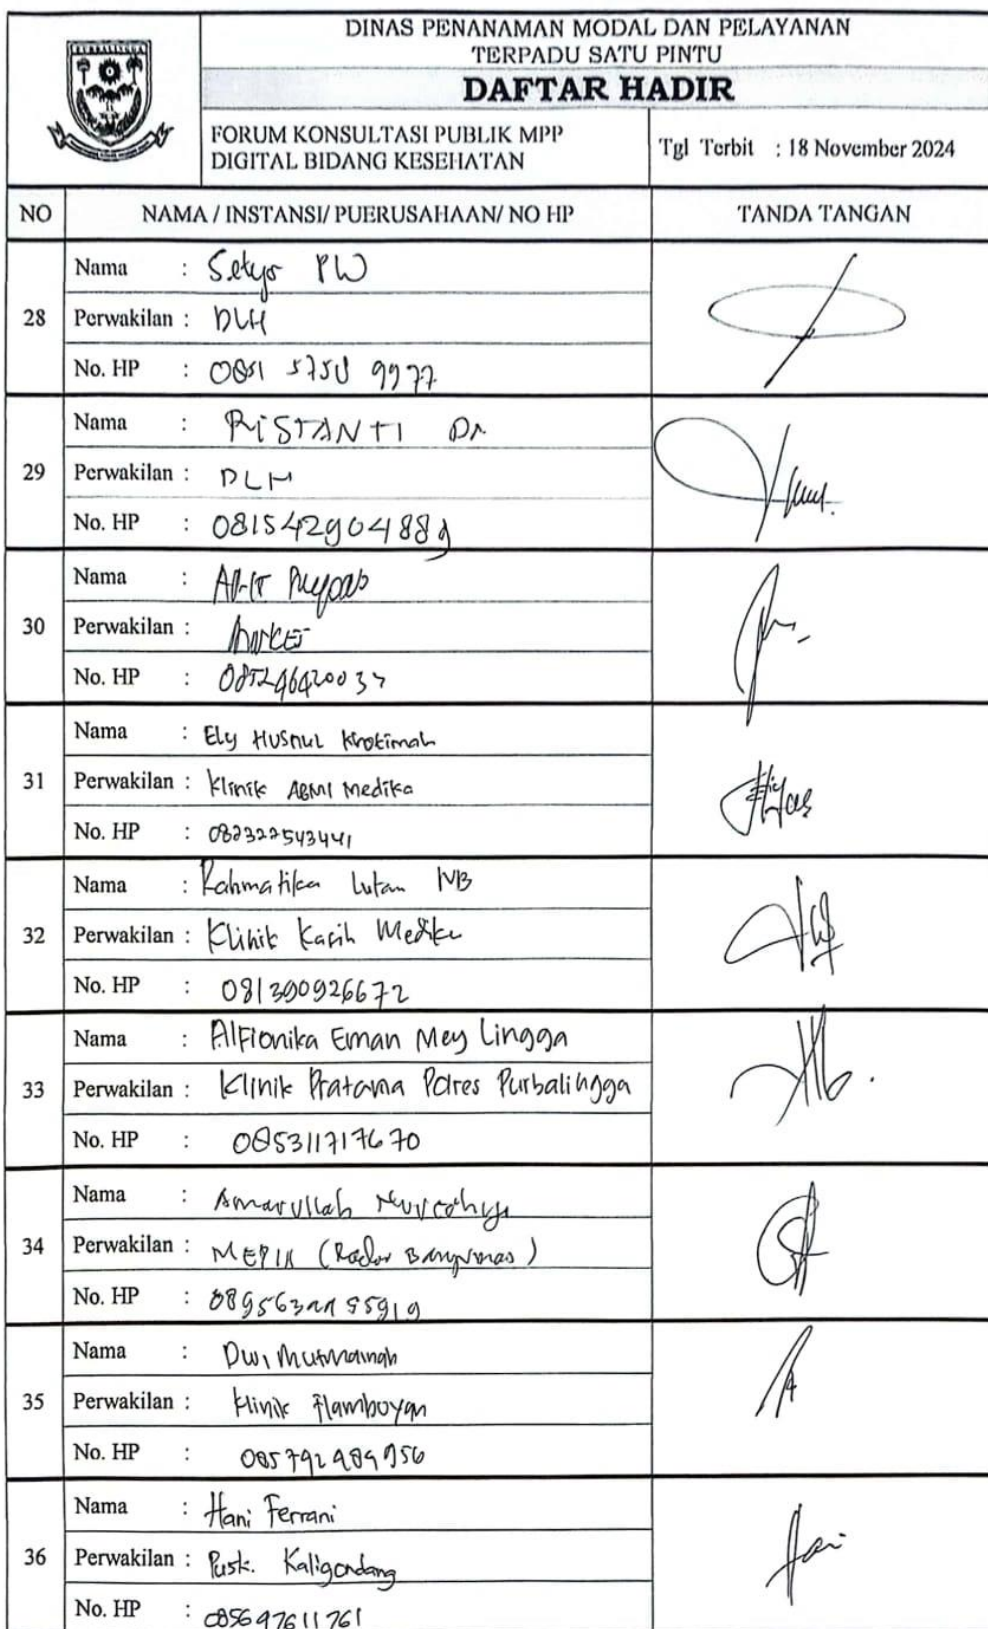 PURBALINGGA
DINAS PENANAMAN MODAL DAN PELAYANAN
TERPADU SATU PINTU
DAFTAR HADIR
FORUM KONSULTASI PUBLIK MPP
DIGITAL BIDANG KESEHATAN
Tgl Terbit : 18 November 2024
NO NAMA / INSTANSI/ PUERUSAHAAN/ NO HP TANDA TANGAN
Nama : Setyo PW
28 Perwakilan : DLH
No. HP : 0851 5750 9977
Nama : RISTANTI DA
29 Perwakilan : DLH
No. HP : 081542904889
Nama :
30 Perwakilan :
No. HP :
Nama : Ely HUSNUL Khotimah
31 Perwakilan : Klinik ABMI Medika
No. HP : 082322543441
Nama : Rahmatika Lutan NB
32 Perwakilan : Klinik Kasih Medika
No. HP : 081390926672
Nama : Alfionika Eman Mey Lingga
33 Perwakilan : Klinik Pratama Polres Purbalingga
No. HP : 085311717670
Nama : Amarullah Nurcahyo
34 Perwakilan : MEDIA (Radar Banyumas)
No. HP :
Nama : Dwi Mutmainah
35 Perwakilan : Klinik Flamboyan
No. HP :
Nama : Hani Ferrani
36 Perwakilan : Pusk. Kaligondang
No. HP : 085697611761